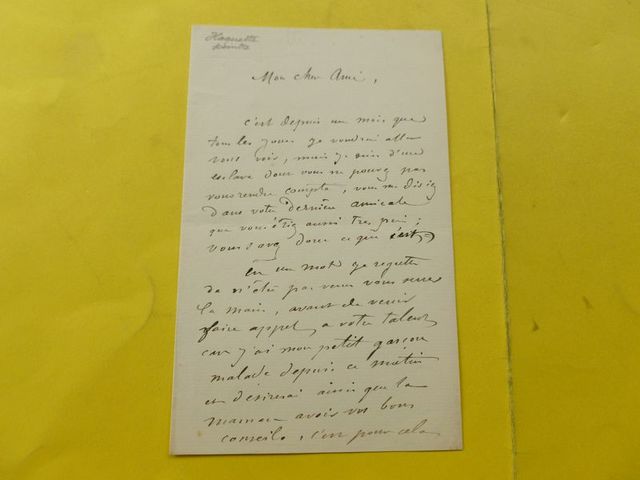 Haquette
peintre
Mon cher Ami,
c'est depuis un mois que
tous les jours je voudrai aller
vous voir, mais je suis d'un
esclave dont vous ne pouvez pas
vous rendre compte, vous me disiez
dans votre dernière amicale
que vous étiez aussi très pris;
vous savez donc ce que c'est
En un mot je regrette
de n'être pas venu vous serrer
la main, avant de venir
faire appel a votre talent
car j'ai mon petit garçon
malade depuis ce matin
et désirerai ainsi que la
maman avoir vos bons
conseils, c'est pour cela